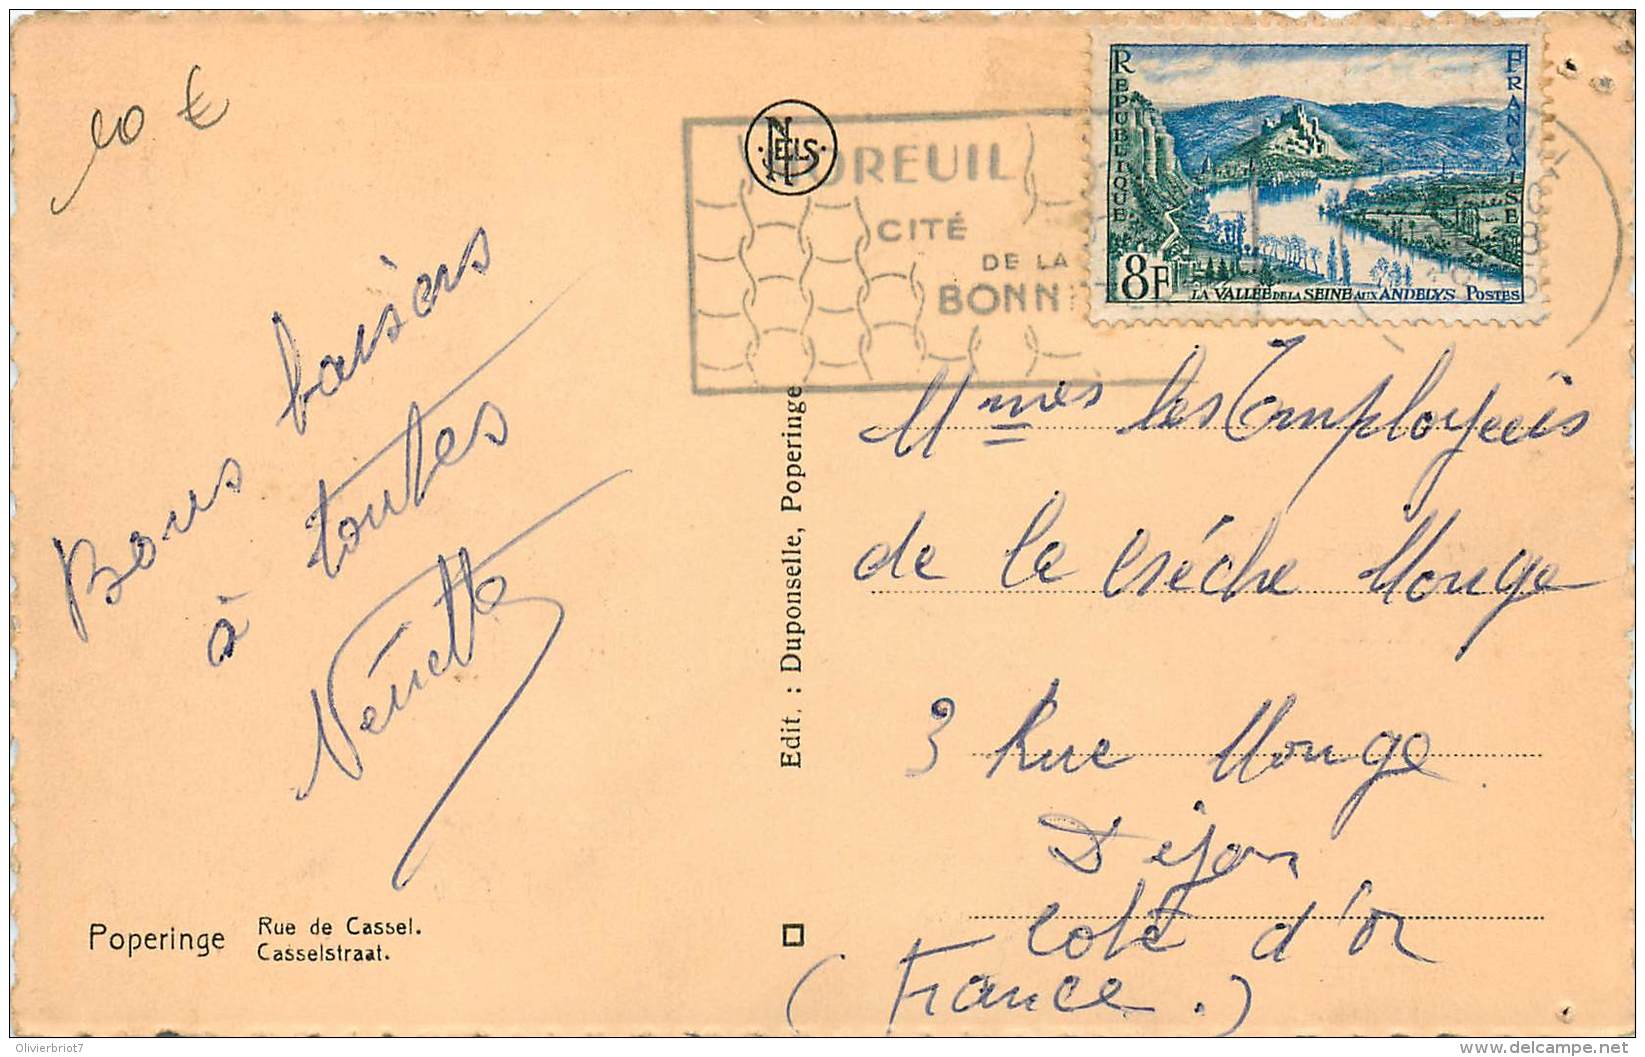 10 €
NELS
OREUIL
CITÉ
DE LA
BONN
RÉPUBLIQUE
FRANÇAISE
8F
LA VALLÉE DE LA SEINE AUX ANDELYS POSTES
Bons baisers
à toutes
Nénette
Poperinge
Rue de Cassel.
Casselstraat.
Edit. : Duponselle, Poperinge
Mmes les Employées
de la Crèche Monge
3 Rue Monge
Dijon
Cote d'or
(France.)
Olivierbriot7
delcampe.net